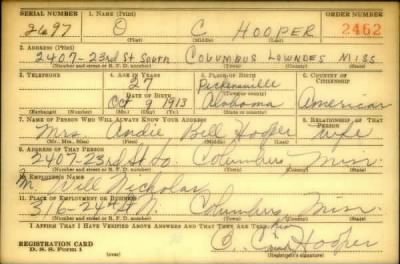 SERIAL NUMBER 1. NAME (Print) ORDER NUMBER
2697 O C HOOPER 2452
(First) (Middle) (Last)
2. ADDRESS (Print)
2407-23rd St South Columbus Lowndes Miss
(Number and street or R. F. D. number) (Town) (County) (State)
3. TELEPHONE 4. AGE IN YEARS 5. PLACE OF BIRTH 6. COUNTRY OF CITIZENSHIP
27 Pickensville
DATE OF BIRTH (Town or county)
Oct 9 1913 Alabama American
(Exchange) (Number) (Mo.) (Day) (Yr.) (State or country)
7. NAME OF PERSON WHO WILL ALWAYS KNOW YOUR ADDRESS 8. RELATIONSHIP OF THAT PERSON
Mrs. Andie Bell Hooper Wife
(Mr., Mrs., Miss) (First) (Middle) (Last)
9. ADDRESS OF THAT PERSON
2407-23rd St So. Columbus Miss
(Number and street or R. F. D. number) (Town) (County) (State)
10. EMPLOYER'S NAME
M Will Nicholas
11. PLACE OF EMPLOYMENT OR BUSINESS
316-24th St N. Columbus Miss
(Number and street or R. F. D. number) (Town) (County) (State)
I AFFIRM THAT I HAVE VERIFIED ABOVE ANSWERS AND THAT THEY ARE TRUE.
REGISTRATION CARD
D. S. S. Form 1
O. C. Hooper
(Registrant's signature)